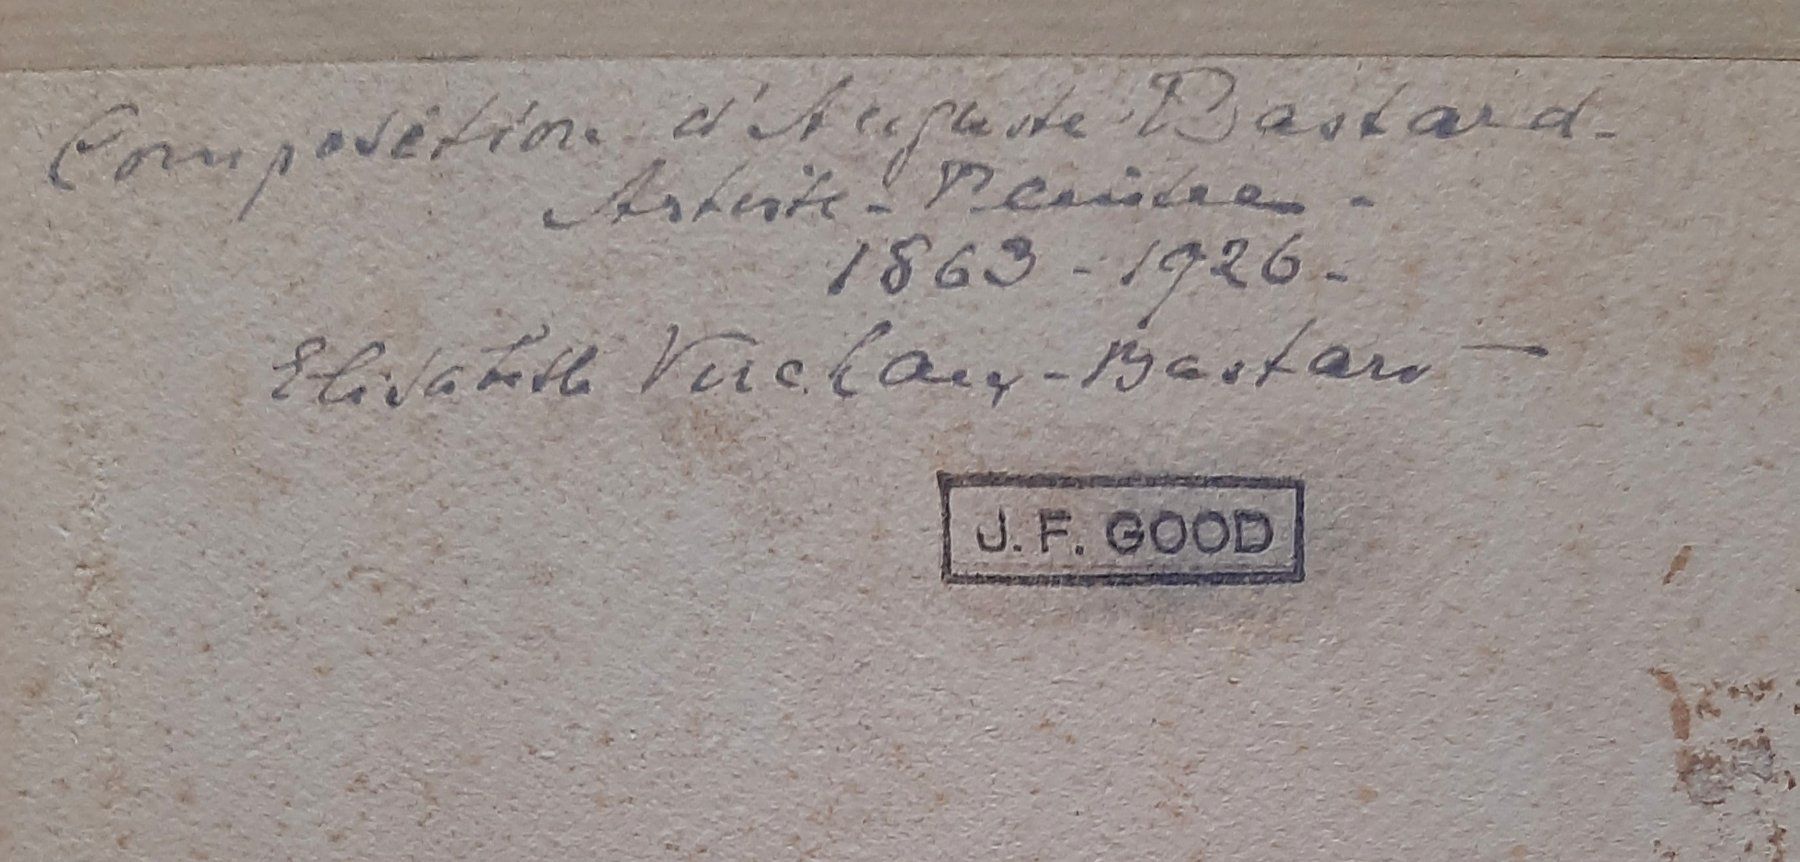 Composition d'Auguste Bastard.
Artiste - Peintre -
1863 - 1926 -
Elisabeth - Bastard
J. F. GOOD